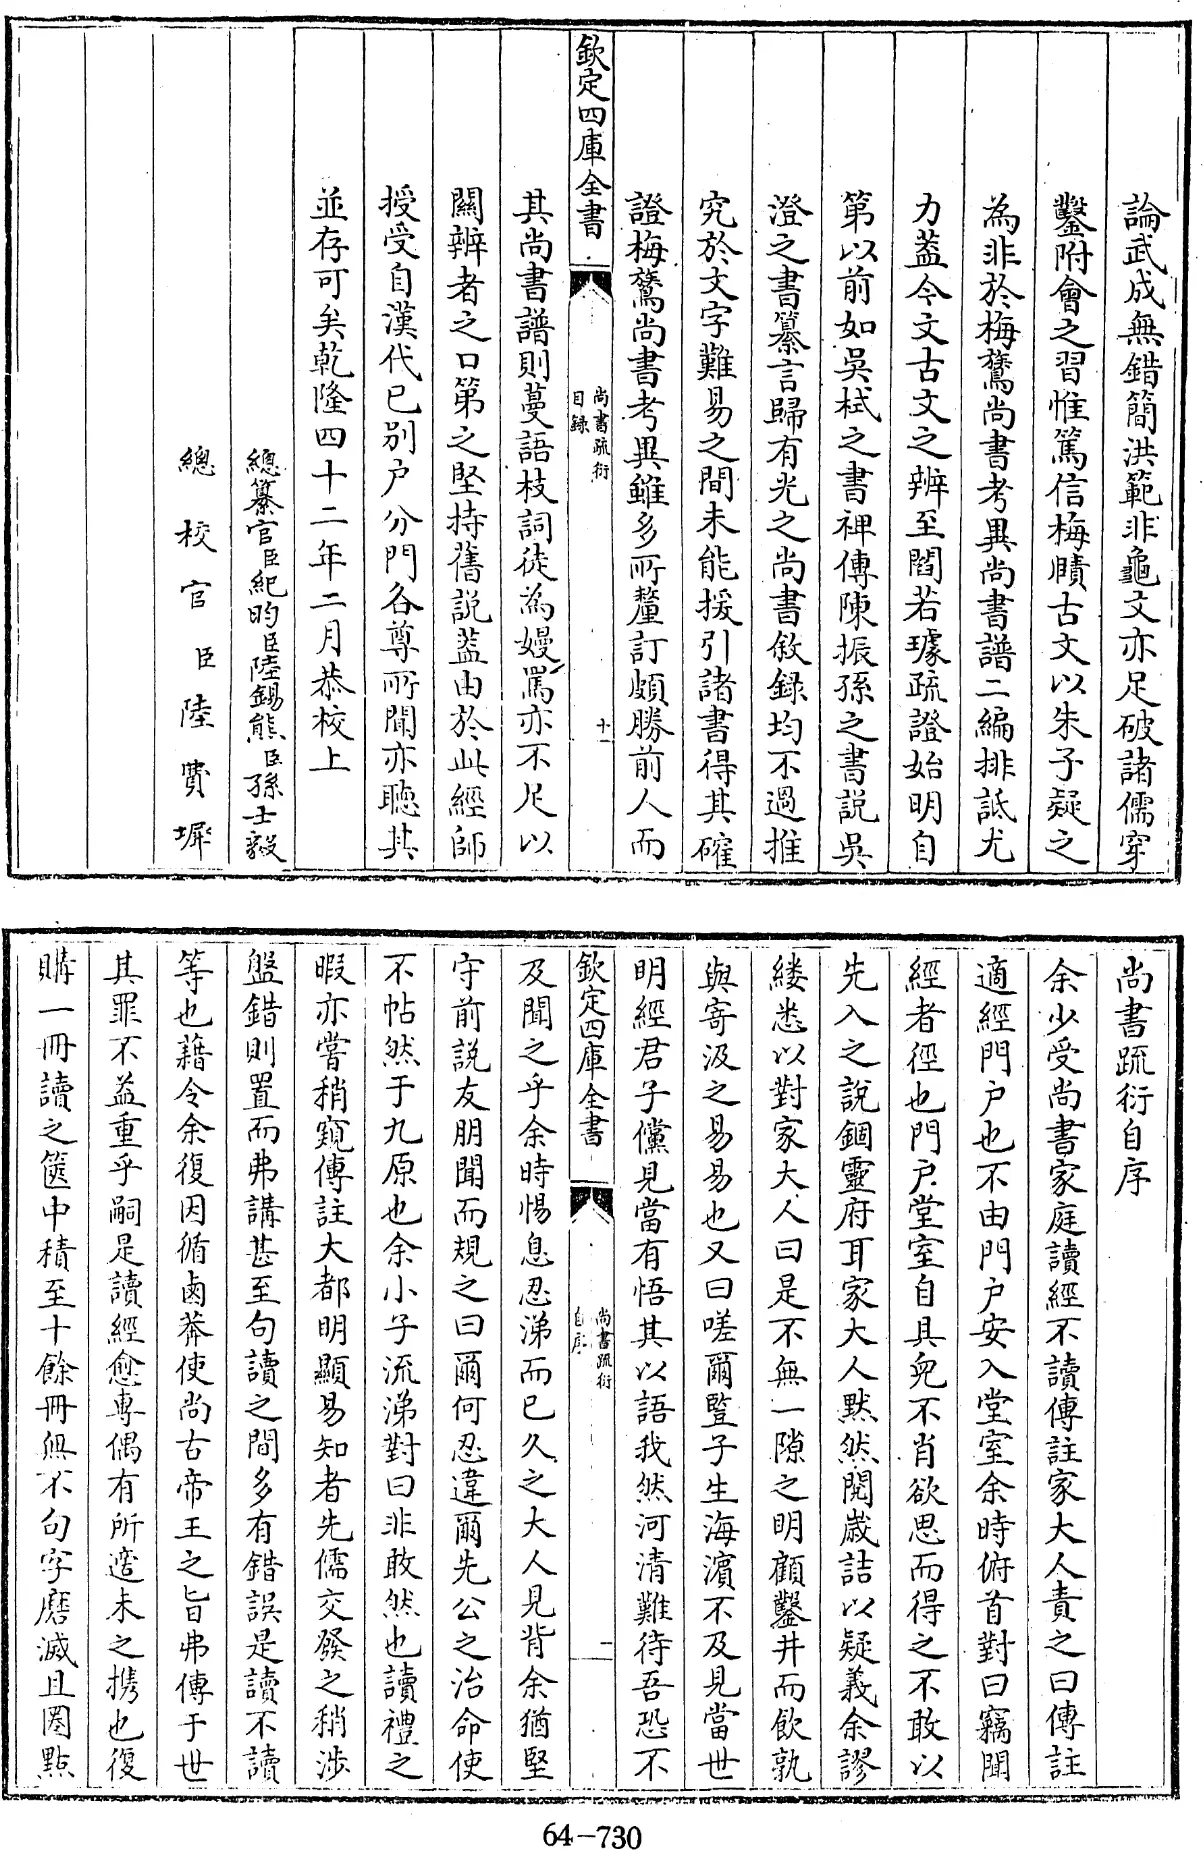 論武成無錯簡洪範非龜文亦足破諸儒穿
鑿附會之習惟篤信梅賾古文以朱子疑之
為非於梅鷟尚書考異尚書譜二編排詆尤
力葢今文古文之辨至閻若璩疏證始明自
第以前如吳棫之書裨傳陳振孫之書説吳
澄之書纂言歸有光之尚書敘録均不過推
究於文字難易之間未能援引諸書得其確
證梅鷟尚書考異雖多所釐訂頗勝前人而
欽定四庫全書
尚書疏衍
目録
十一
其尚書譜則蔓語枝詞徒為嫚罵亦不足以
關辨者之口第之堅持舊説葢由於此經師
授受自漢代已别户分門各尊所聞亦聽其
並存可矣乾隆四十二年二月恭校上
總纂官臣紀昀臣陸錫熊臣孫士毅
總校官臣陸費墀
尚書疏衍自序
余少受尚書家庭讀經不讀傳註家大人責之曰傳註
適經門户也不由門户安入堂室余時俯首對曰竊聞
經者徑也門户堂室自具兒不肖欲思而得之不敢以
先入之説錮靈府耳家大人黙然閱嵗詰以疑義余謬
縷悉以對家大人曰是不無一隙之明顧鑿井而飲孰
與寄汲之易易也又曰嗟爾豎子生海濵不及見當世
明經君子儻見當有悟其以語我然河清難待吾恐不
欽定四庫全書
尚書疏衍
自序
一
及聞之乎余時惕息忍涕而已久之大人見背余猶堅
守前説友朋聞而規之曰爾何忍違爾先公之治命使
不帖然于九原也余小子流涕對曰非敢然也讀禮之
暇亦嘗稍窺傳註大都明顯易知者先儒交發之稍涉
盤錯則置而弗講甚至句讀之間多有錯誤是讀不讀
等也藉令余復因循鹵莽使尚古帝王之旨弗傳于世
其罪不益重乎嗣是讀經愈專偶有所適未之携也復
購一冊讀之篋中積至十餘冊無不句字磨滅且圏點